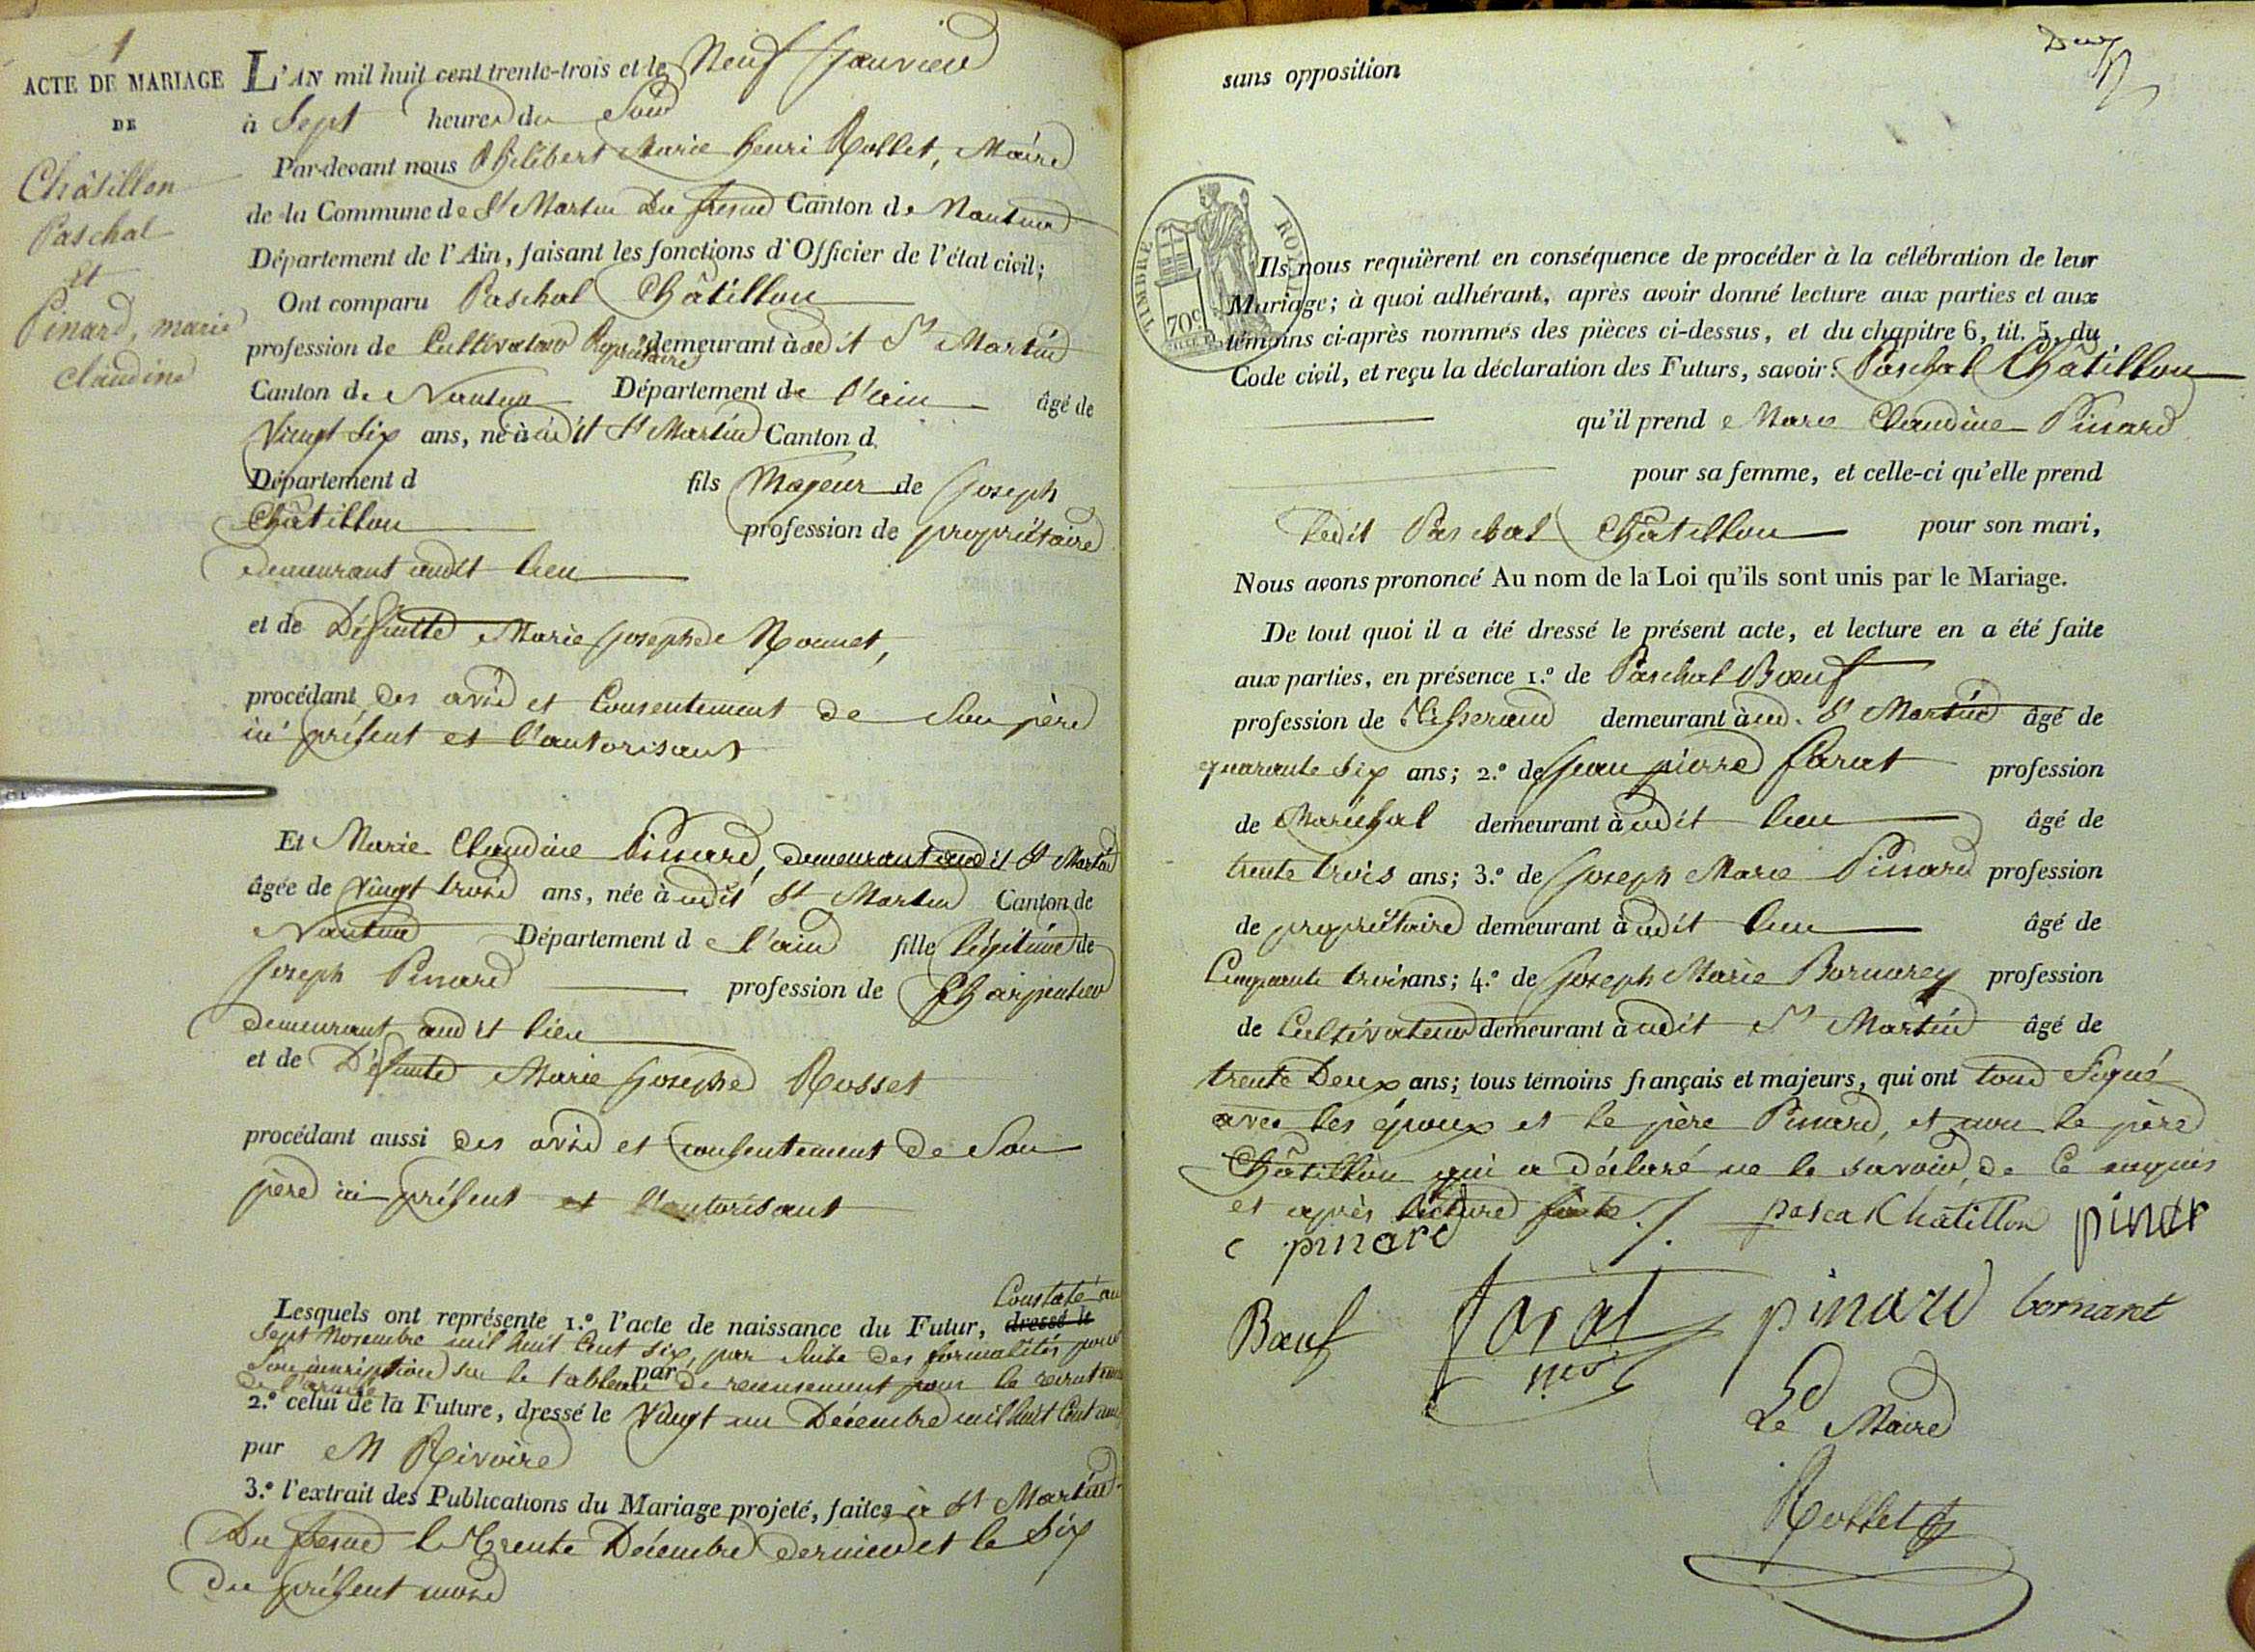 1
ACTE DE MARIAGE
DE
Châtillon
Paschal
et
Pinard, marie
claudine
L'AN mil huit cent trente-trois et le Neuf Janvier
à Sept heures du Soir
Par-devant nous Philibert Marie henri Rollet, Maire
de la Commune de St Martin Du fresne Canton de Nantua
Département de l'Ain, faisant les fonctions d'Officier de l'état civil;
Ont comparu Paschal Châtillon
profession de Cultivateur Propriétaire demeurant à udit St Martin
Canton de Nantua Département de l'ain âgé de
Vingt Six ans, né à udit St Martin Canton d
Département d fils Majeur de Joseph
Châtillon profession de propriétaire
demeurant audit lieu
et de Défunte Marie Josephe
procédant des avis et Consentement de Son père
ici présent et l'autorisant
Et Marie Claudine Pinard, demeurant audit St Martin
âgée de Vingt trois ans, née à udit St Martin Canton de
Nantua Département d e l'ain fille légitime de
Joseph Pinard profession de Charpentier
demeurant audit lieu
et de Défunte Marie Josephe Rosset
procédant aussi des avis et consentement de Son
père ici présent et l'autorisant
Lesquels ont représente 1.º l'acte de naissance du Futur, dressé le Constaté au
Sept Novembre mil huit Cent Six, par Suite des formalités pour
Son inscription sur le tableau par de recensement pour le recrutement
de l'armée
2.º celui de la Future, dressé le Vingt un Décembre mil huit Cent
par M Rivoire
3.º l'extrait des Publications du Mariage projeté, faites à St Martin
Du fresne le Trente Décembre dernier et le Six
du présent mois
Deux
sans opposition
TIMBRE ROYAL
70c
Ils nous requièrent en conséquence de procéder à la célébration de leur
Mariage; à quoi adhérant, après avoir donné lecture aux parties et aux
témoins ci-après nommés des pièces ci-dessus, et du chapitre 6, tit. 5, du
Code civil, et reçu la déclaration des Futurs, savoir: Paschal Châtillon
qu'il prend Marie Claudine Pinard
pour sa femme, et celle-ci qu'elle prend
ledit Paschal Châtillon pour son mari,
Nous avons prononcé Au nom de la Loi qu'ils sont unis par le Mariage.
De tout quoi il a été dressé le présent acte, et lecture en a été faite
aux parties, en présence 1.º de Paschal Bœuf
profession de Tisserand demeurant à ud. St Martin âgé de
quarante Six ans; 2.º de Jean pierre farat profession
de Maréchal demeurant à udit lieu âgé de
trente trois ans; 3.º de Joseph Marie Pinard profession
de propriétaire demeurant à udit lieu âgé de
Cinquante trois ans; 4.º de Joseph Marie Bornarey profession
de Cultivateur demeurant à udit St Martin âgé de
trente Deux ans; tous témoins français et majeurs, qui ont tous Signé
avec les époux et le père Pinard, et non le père
Châtillon qui a déclaré ne le savoir, de Ce enquis
et après lecture faite./. pascal Châtillon pinar
c pinard
Bœuf farat pinard
Le Maire
Rollet